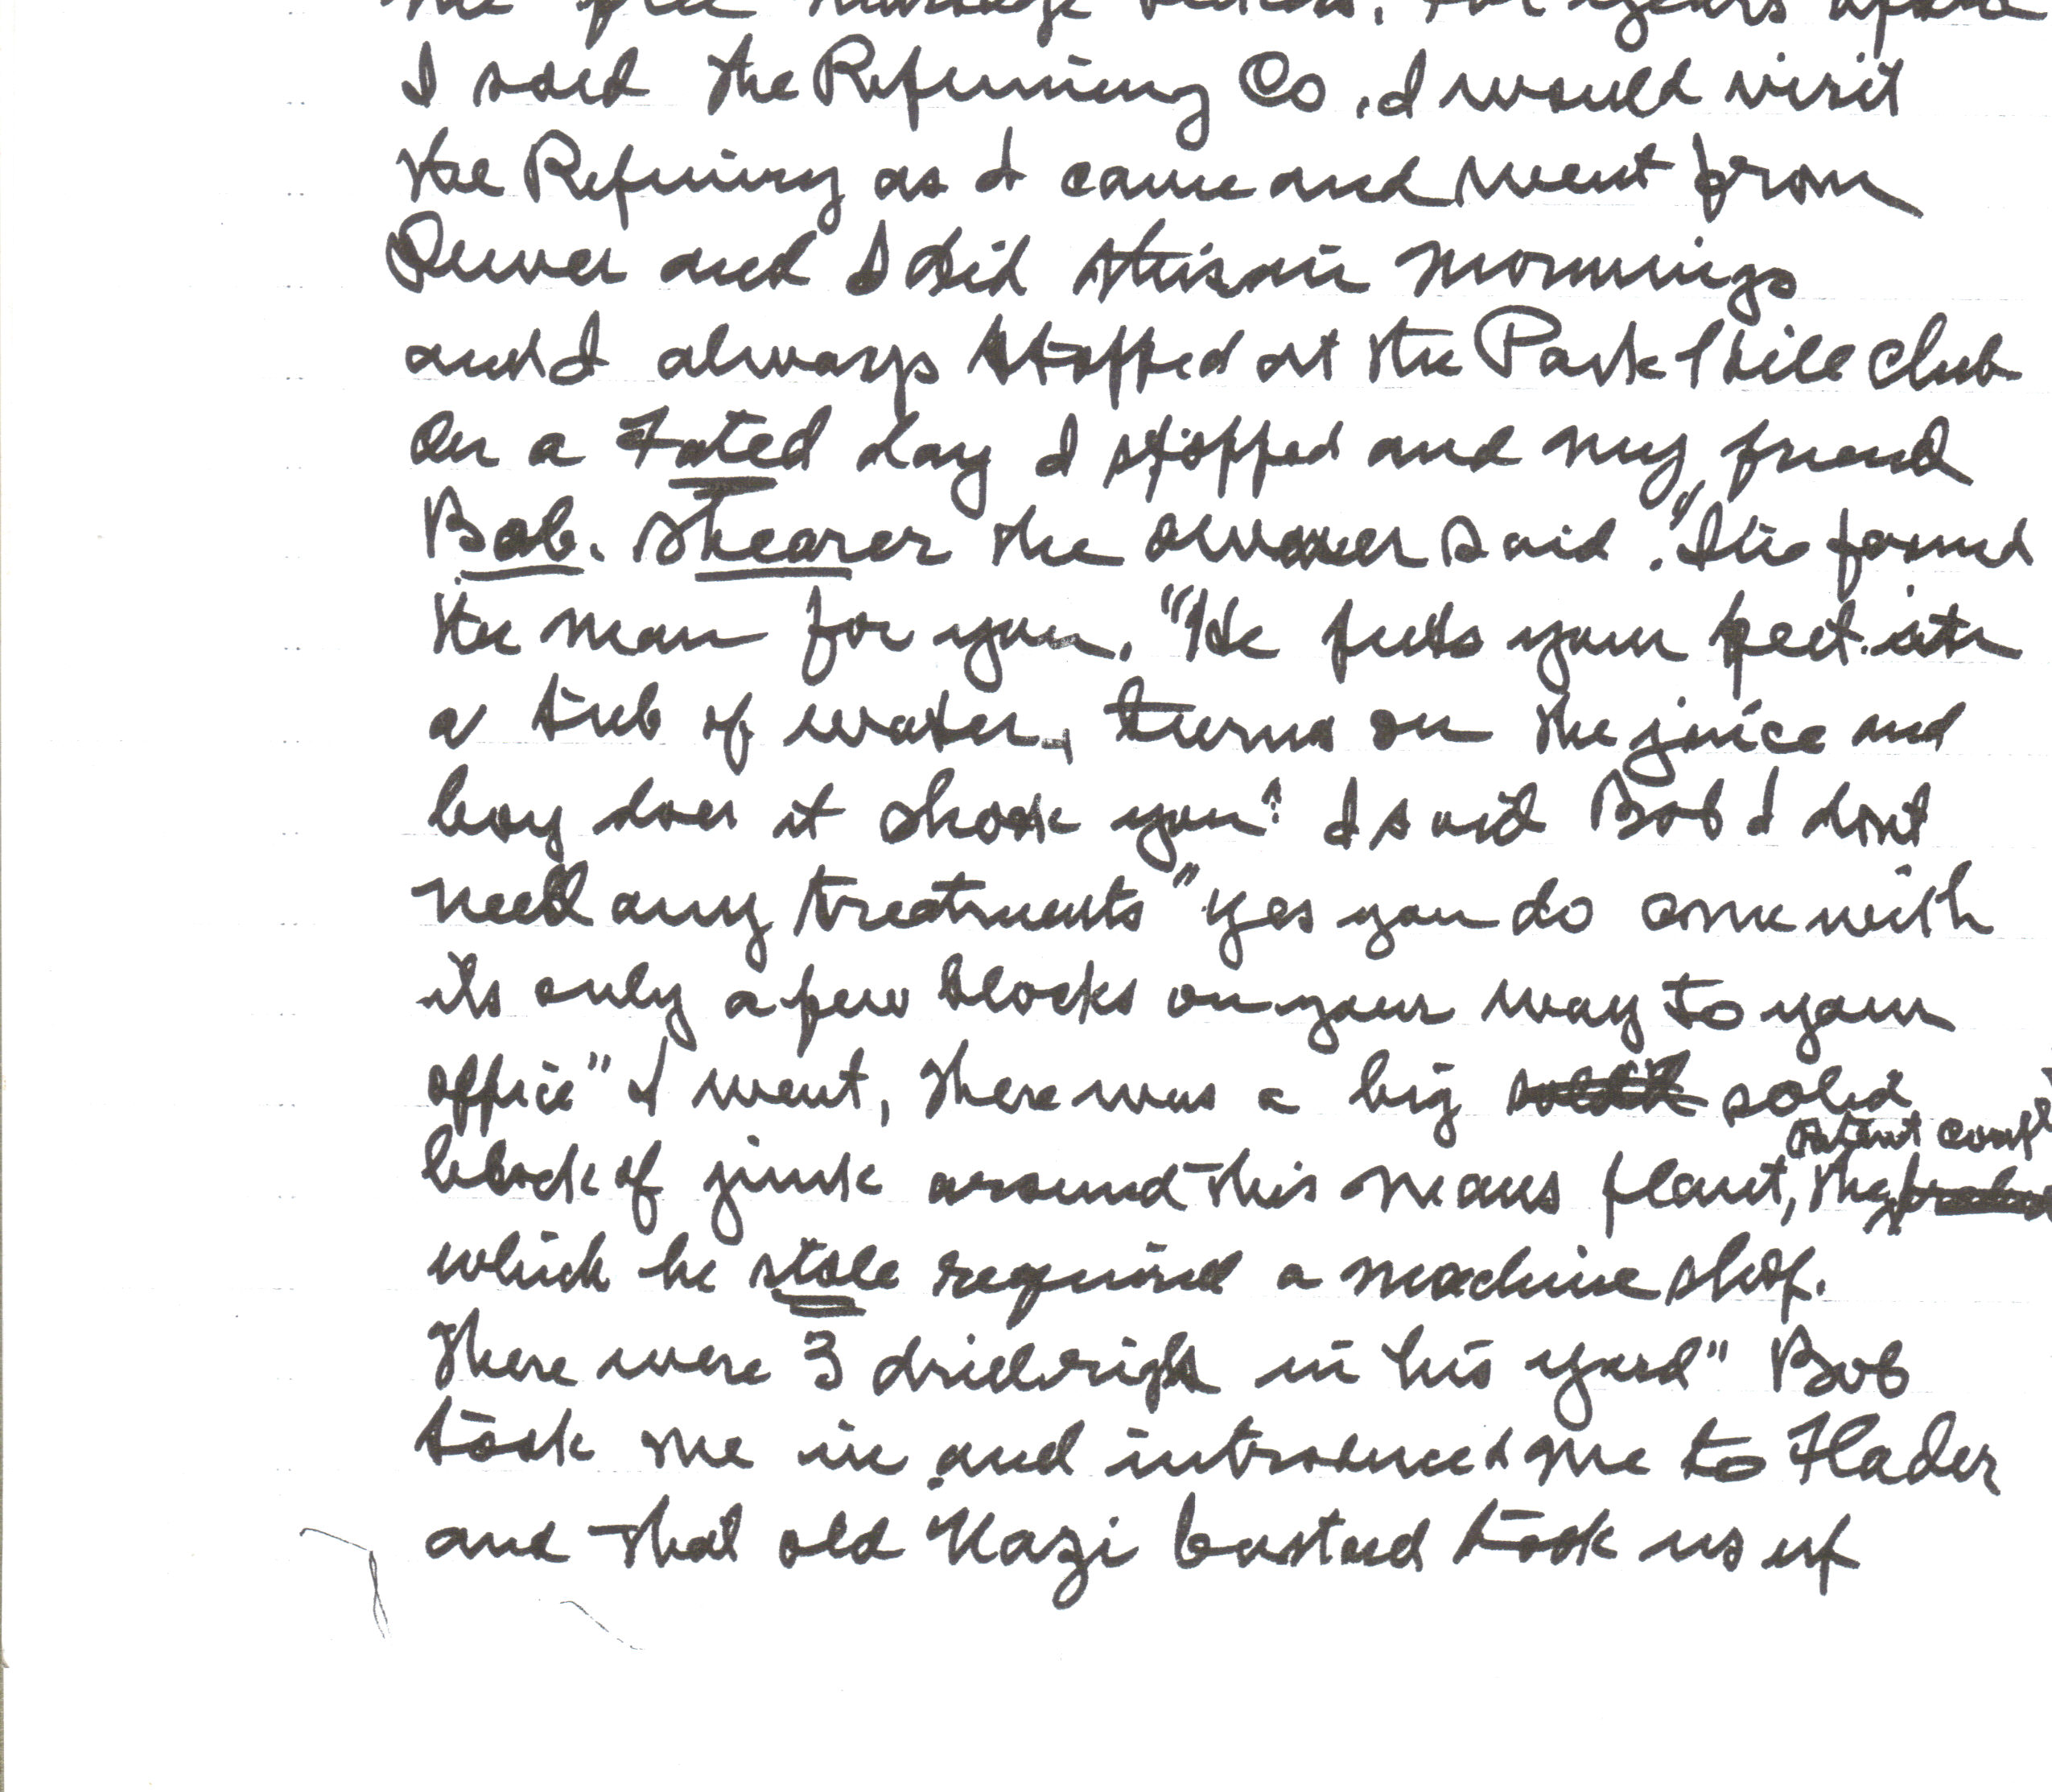 I sold the Refinining Co, I would visit
the Refinery as I came and went from
Denver and I did this in mornings
and I always stopped at the Park Hill Club
On a Fated day I stopped and my friend
Bob. Shearer the owner said. "I've found
the man for you. "He puts your feet in
a tub of water, turns on the juice and
boy does it shock you" I said Bob I dont
need any treatments "yes you do come with
its only a few blocks on your way to your
office" I went, there was a big solid
block of junk around this mans plant, the patent
which he stole required a machine shop.
There were 3 drill rigs in his yard" Bob
took me in and introduced me to Hader
and that old Nazi bastard took us up